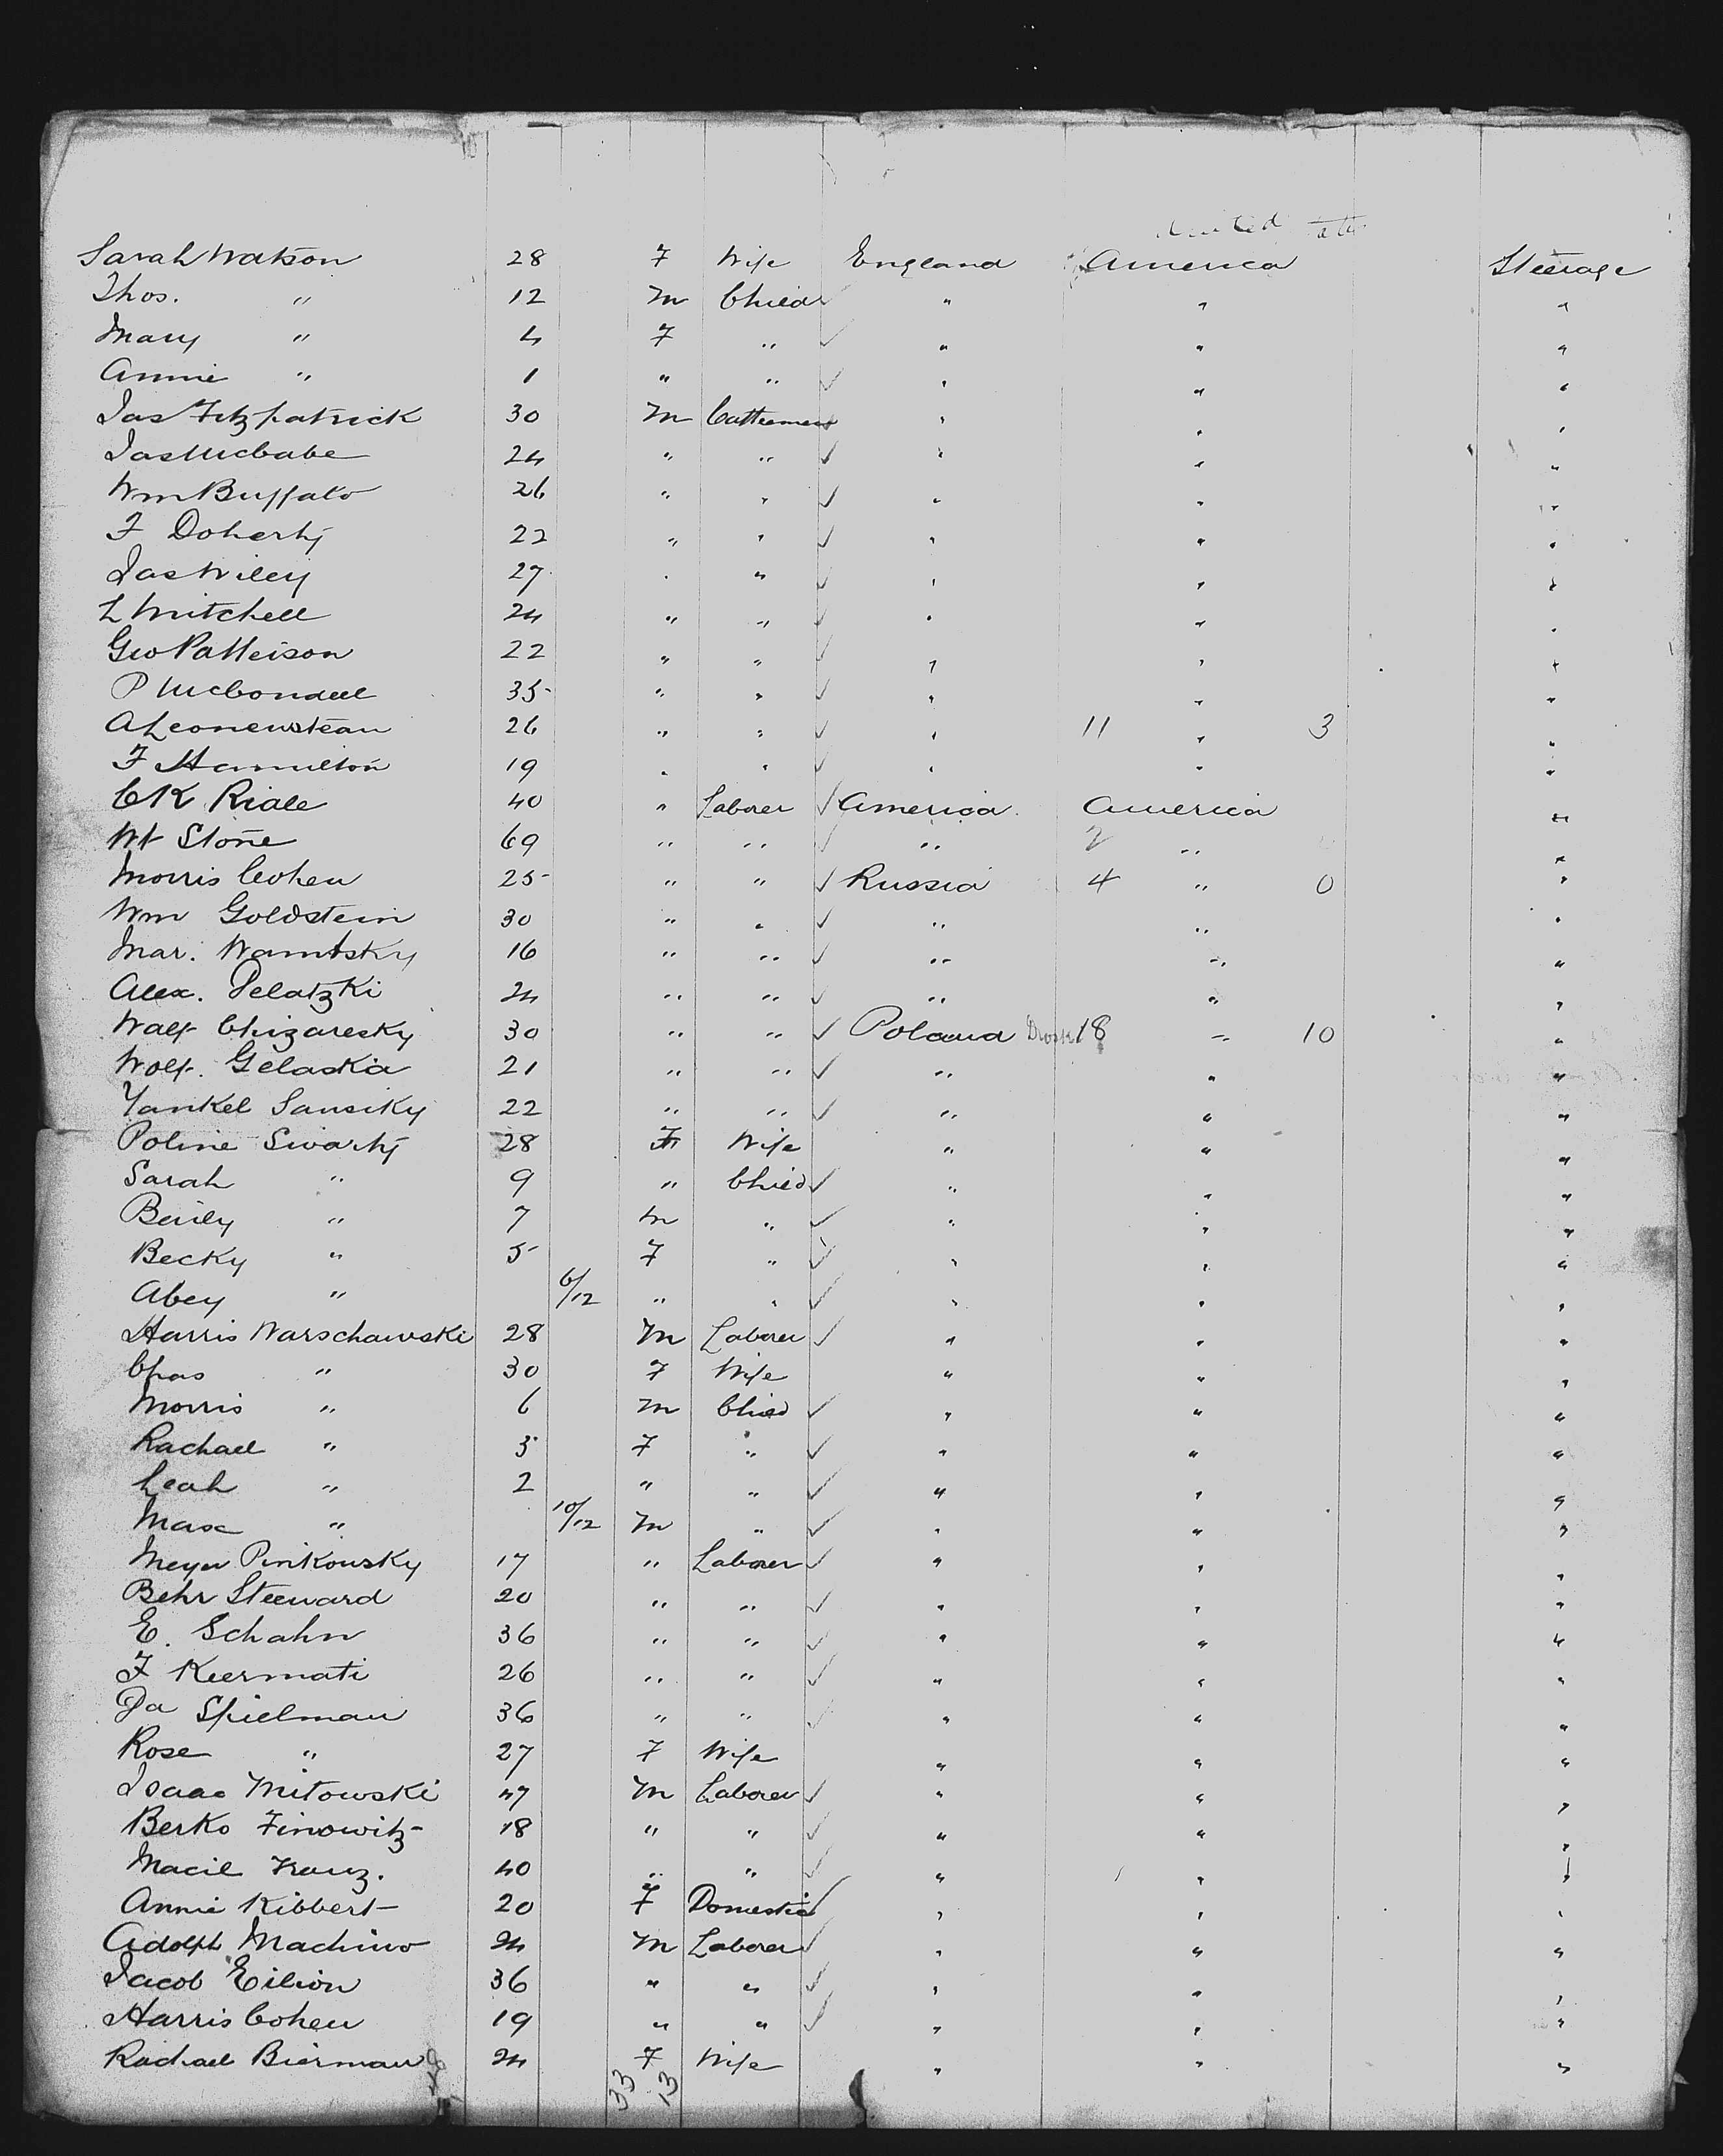 United States
Sarah Watson 28 F Wife England America Steerage
Thos. " 12 m Child " " "
Mary " 4 F " " " "
Annie " 1 " " " " "
Jas Fitzpatrick 30 m Cattlemen " " "
Jas McCabe 24 " " " " "
Wm Buffalo 26 " " " " "
F Doherty 22 " " " " "
Jas Wiley 27 " " " " "
L Mitchell 24 " " " " "
Geo Patteison 22 " " " " "
P McConnell 35 " " " " "
A 26 " " " 11 " 3 "
F Hamilton 19 " " " " "
C K Riale 40 " Laborer America America "
Wt Stone 69 " " " 2 " "
Morris Cohen 25 " " Russia 4 " 0 "
Wm Goldstein 30 " " " " "
Mar. 16 " " " " "
Alex. Pelatzki 24 " " " " "
Walf Chizaresky 30 " " Poland 18 " 10 "
Wolf. Gelaskia 21 " " " " "
Yankel Sansiky 22 " " " " "
Poline Swarty 28 F Wife " " "
Sarah " 9 " Child " " "
" 7 m " " " "
Becky " 5 F " " " "
Abey " 6/12 " " " " "
Harris Warschawski 28 m Laborer " " "
Chas " 30 F Wife " " "
Morris " 6 m Child " " "
Rachael " 3 F " " " "
Leah " 2 " " " " "
Max " 10/12 m " " " "
Meyer Pinkousky 17 " Laborer " " "
Behr Steeward 20 " " " " "
E. Schahn 36 " " " " "
F Keermati 26 " " " " "
Da Spielman 36 " " " " "
Rose " 27 F Wife " " "
Isaac Mitowski 47 m Laborer " " "
Berko Finowitz 18 " " " " "
Macil 40 " " " " "
Annie Kibbert 20 F Domestic " " "
Adolph Machino 24 m Laborer " " "
Jacob Eilion 36 " " " " "
Harris Cohen 19 " " " " "
Rachael Bierman 24 F Wife " " "
33 13